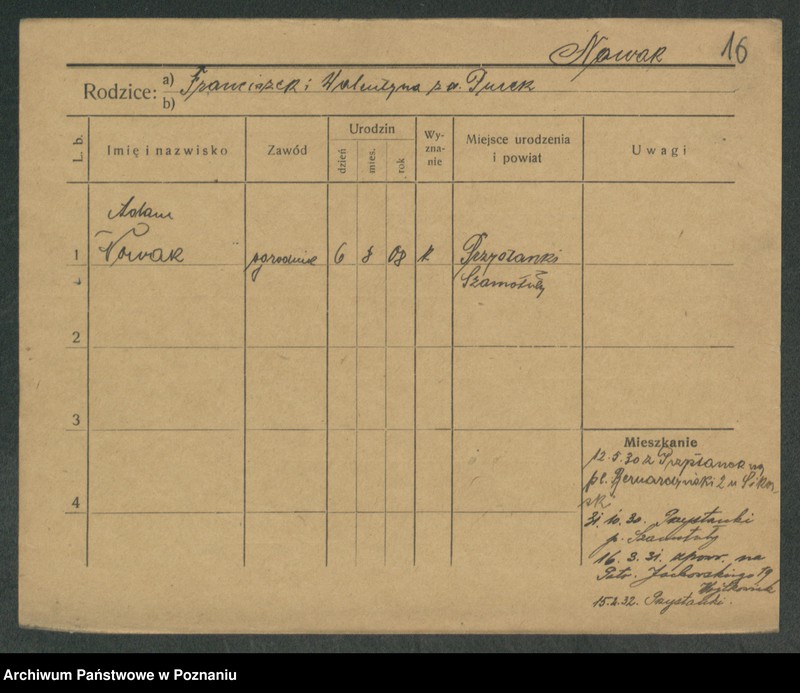 Nowak 16
Rodzice: a) Franciszek i Walentyna z d. Durek
b)
L. b. Imię i nazwisko Zawód Urodzin dzień mies. rok Wyznanie Miejsce urodzenia i powiat Uwagi
Adam
1 Nowak ogrodnik 6 08 Przystanki
Szamotuły
2
3
4
Mieszkanie
12.5.30 z na
pl. Bernardyński 2 u
31.10.30. Przystanki
p. Szamotuły
16.3.31. na
19
15.2.32. Przystanki.
Archiwum Państwowe w Poznaniu